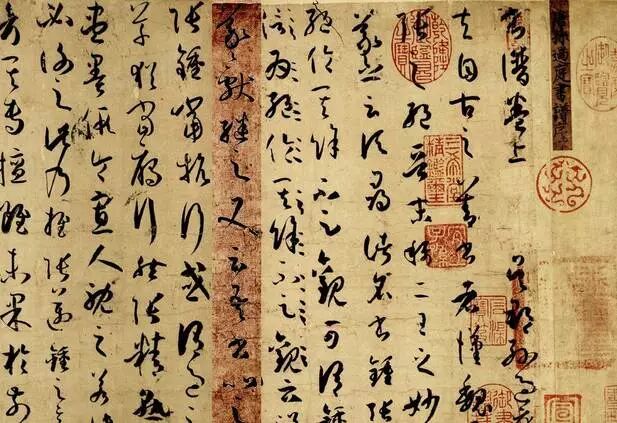 書譜卷上 吳郡孫過庭
夫自古之善書者漢魏
張之絕晉末稱二王之妙
羲之云頃尋諸名書鍾張
絕倫其餘不足觀可謂鍾
絕倫其餘不足觀云
羲獻繼之又云吾書比之
張鍾當抗行或謂過之
草猶當雁行然張精熟
盡墨假令寡人耽之若
必謝之此乃推張邁鍾之
考其專擅雖未果於前